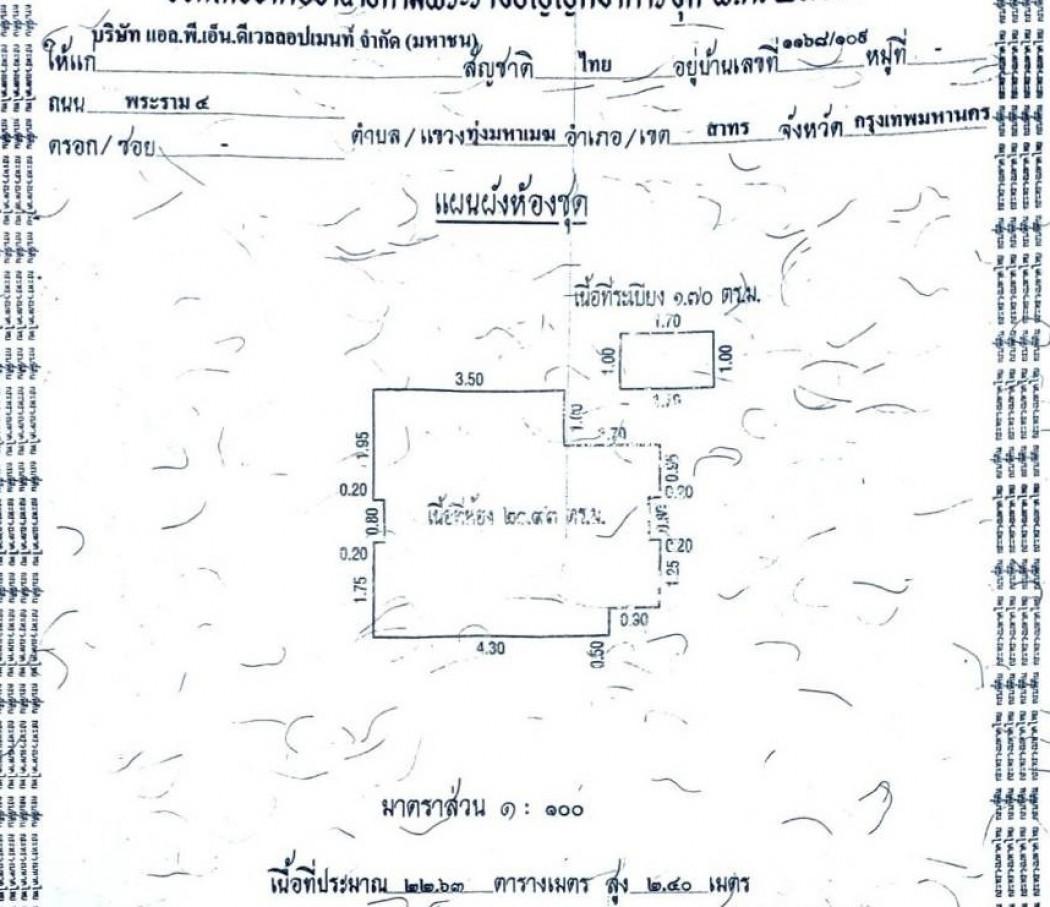 บริษัท แอล.พี.เอ็น.ดีเวลลอปเมนท์ จำกัด (มหาชน) ๑๑๖๘/๑๐๙
ให้แก่ สัญชาติ ไทย อยู่บ้านเลขที่ หมู่ที่ -
ถนน พระราม ๔
ตรอก/ซอย - ตำบล/แขวง ทุ่งมหาเมฆ อำเภอ/เขต สาทร จังหวัด กรุงเทพมหานคร
แผนผังห้องชุด
เนื้อที่ระเบียง ๑.๗๐ ตร.ม.
1.70
1.00 1.00
1.70
3.50
1.00
1.70
1.95 0.95
0.20 0.20
0.80
เนื้อที่ห้อง ๒๐.๙๓ ตร.ม.
0.20 0.20
1.75 1.25
0.90
4.30 0.50
มาตราส่วน ๑ : ๑๐๐
เนื้อที่ประมาณ ๒๒.๖๓ ตารางเมตร สูง ๒.๔๐ เมตร